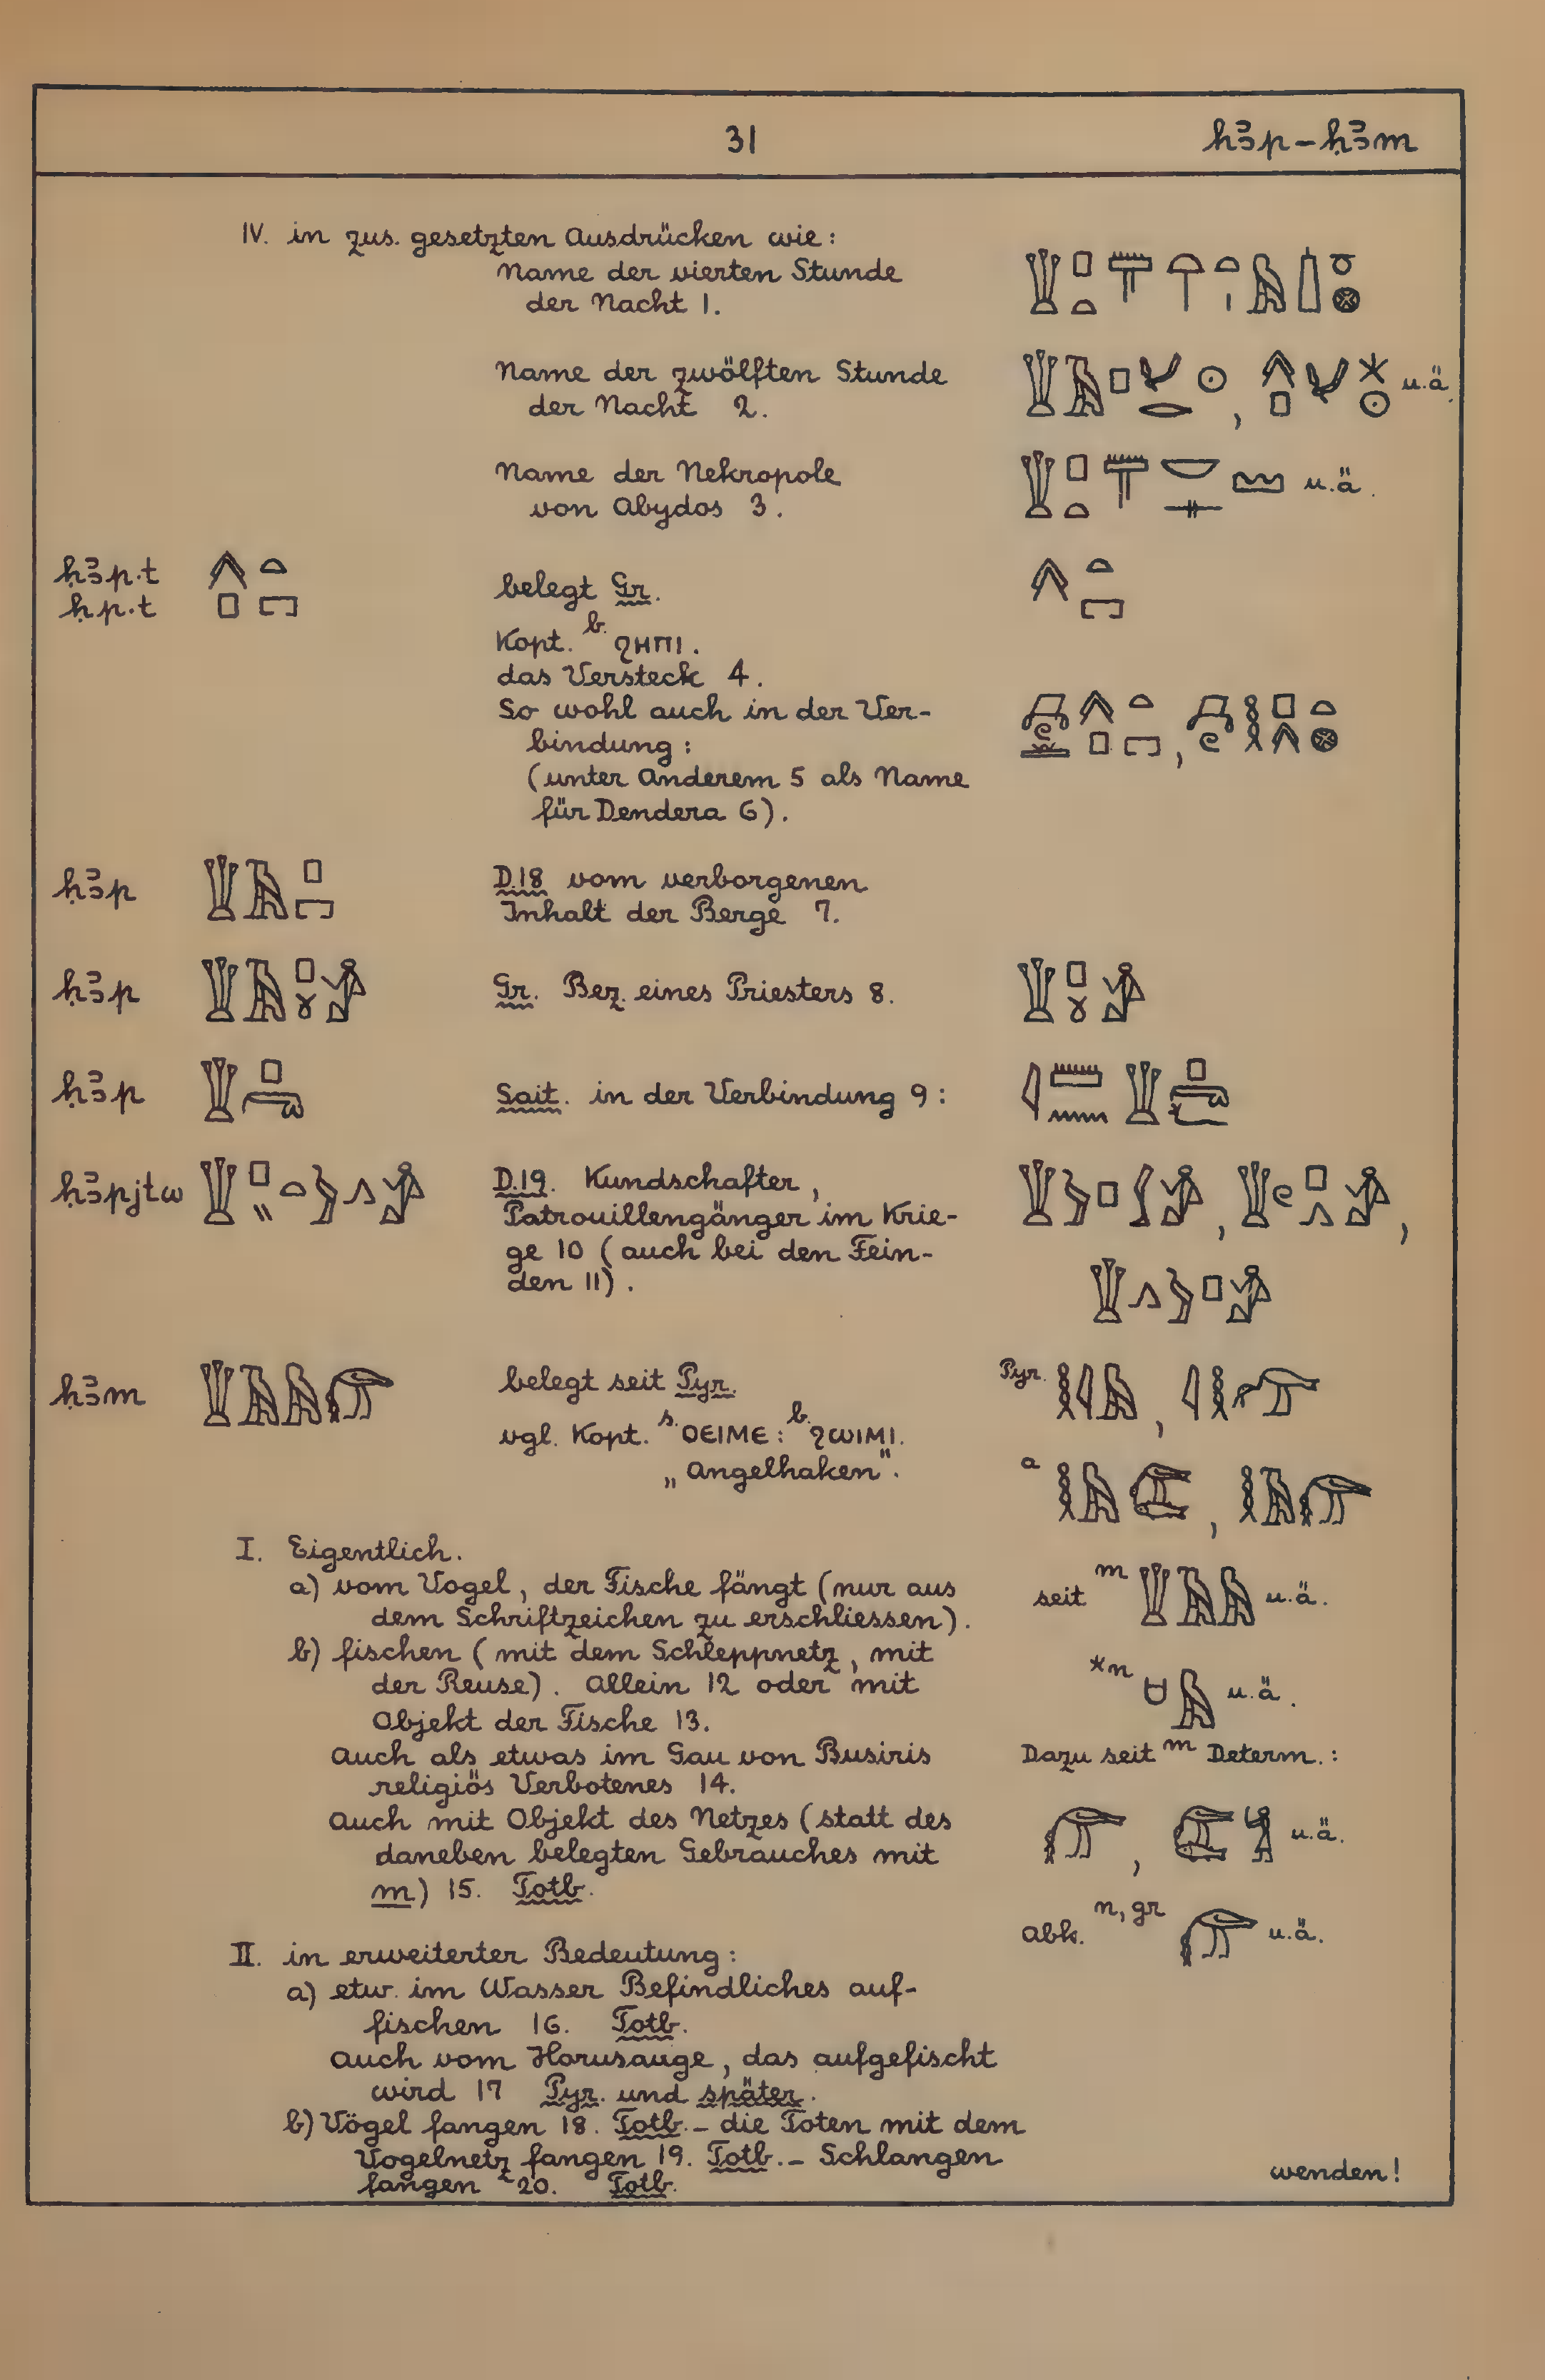 31 ḥꜣp – ḥꜣm
IV. in zus. gesetzten Ausdrücken wie:
Name der vierten Stunde
der Nacht 1.
Name der zwölften Stunde
der Nacht 2. u.ä.
Name der Nekropole
von Abydos 3. u.ä.
ḥꜣp.t
ḥp.t
belegt Gr.
Kopt. b. ϩⲏⲡⲓ.
das Versteck 4.
So wohl auch in der Ver-
bindung:
(unter Anderem 5 als Name
für Dendera 6).
ḥꜣp D.18 vom verborgenen
Inhalt der Berge 7.
ḥꜣp Gr. Bez. eines Priesters 8.
ḥꜣp Sait. in der Verbindung 9:
ḥꜣpjtw D.19. Kundschafter,
Patrouillengänger im Krie-
ge 10 (auch bei den Fein-
den 11).
ḥꜣm belegt seit Pyr. Pyr.
vgl. Kopt. s. ⲟⲉⲓⲙⲉ: b. ϩⲱⲓⲙⲓ.
„Angelhaken". a
I. Eigentlich.
a) vom Vogel, der Fische fängt (nur aus seit m u.ä.
dem Schriftzeichen zu erschliessen).
b) fischen (mit dem Schleppnetz, mit
der Reuse). Allein 12 oder mit *n u.ä.
Objekt der Fische 13.
Auch als etwas im Gau von Busiris Dazu seit m Determ.:
religiös Verbotenes 14.
Auch mit Objekt des Netzes (statt des u.ä.
daneben belegten Gebrauches mit
m) 15. Totb.
Abk. n, gr u.ä.
II. in erweiterter Bedeutung:
a) etw. im Wasser Befindliches auf-
fischen 16. Totb.
Auch vom Horusauge, das aufgefischt
wird 17 Pyr. und später.
b) Vögel fangen 18. Totb. – die Toten mit dem
Vogelnetz fangen 19. Totb. – Schlangen
fangen 20. Totb. wenden!